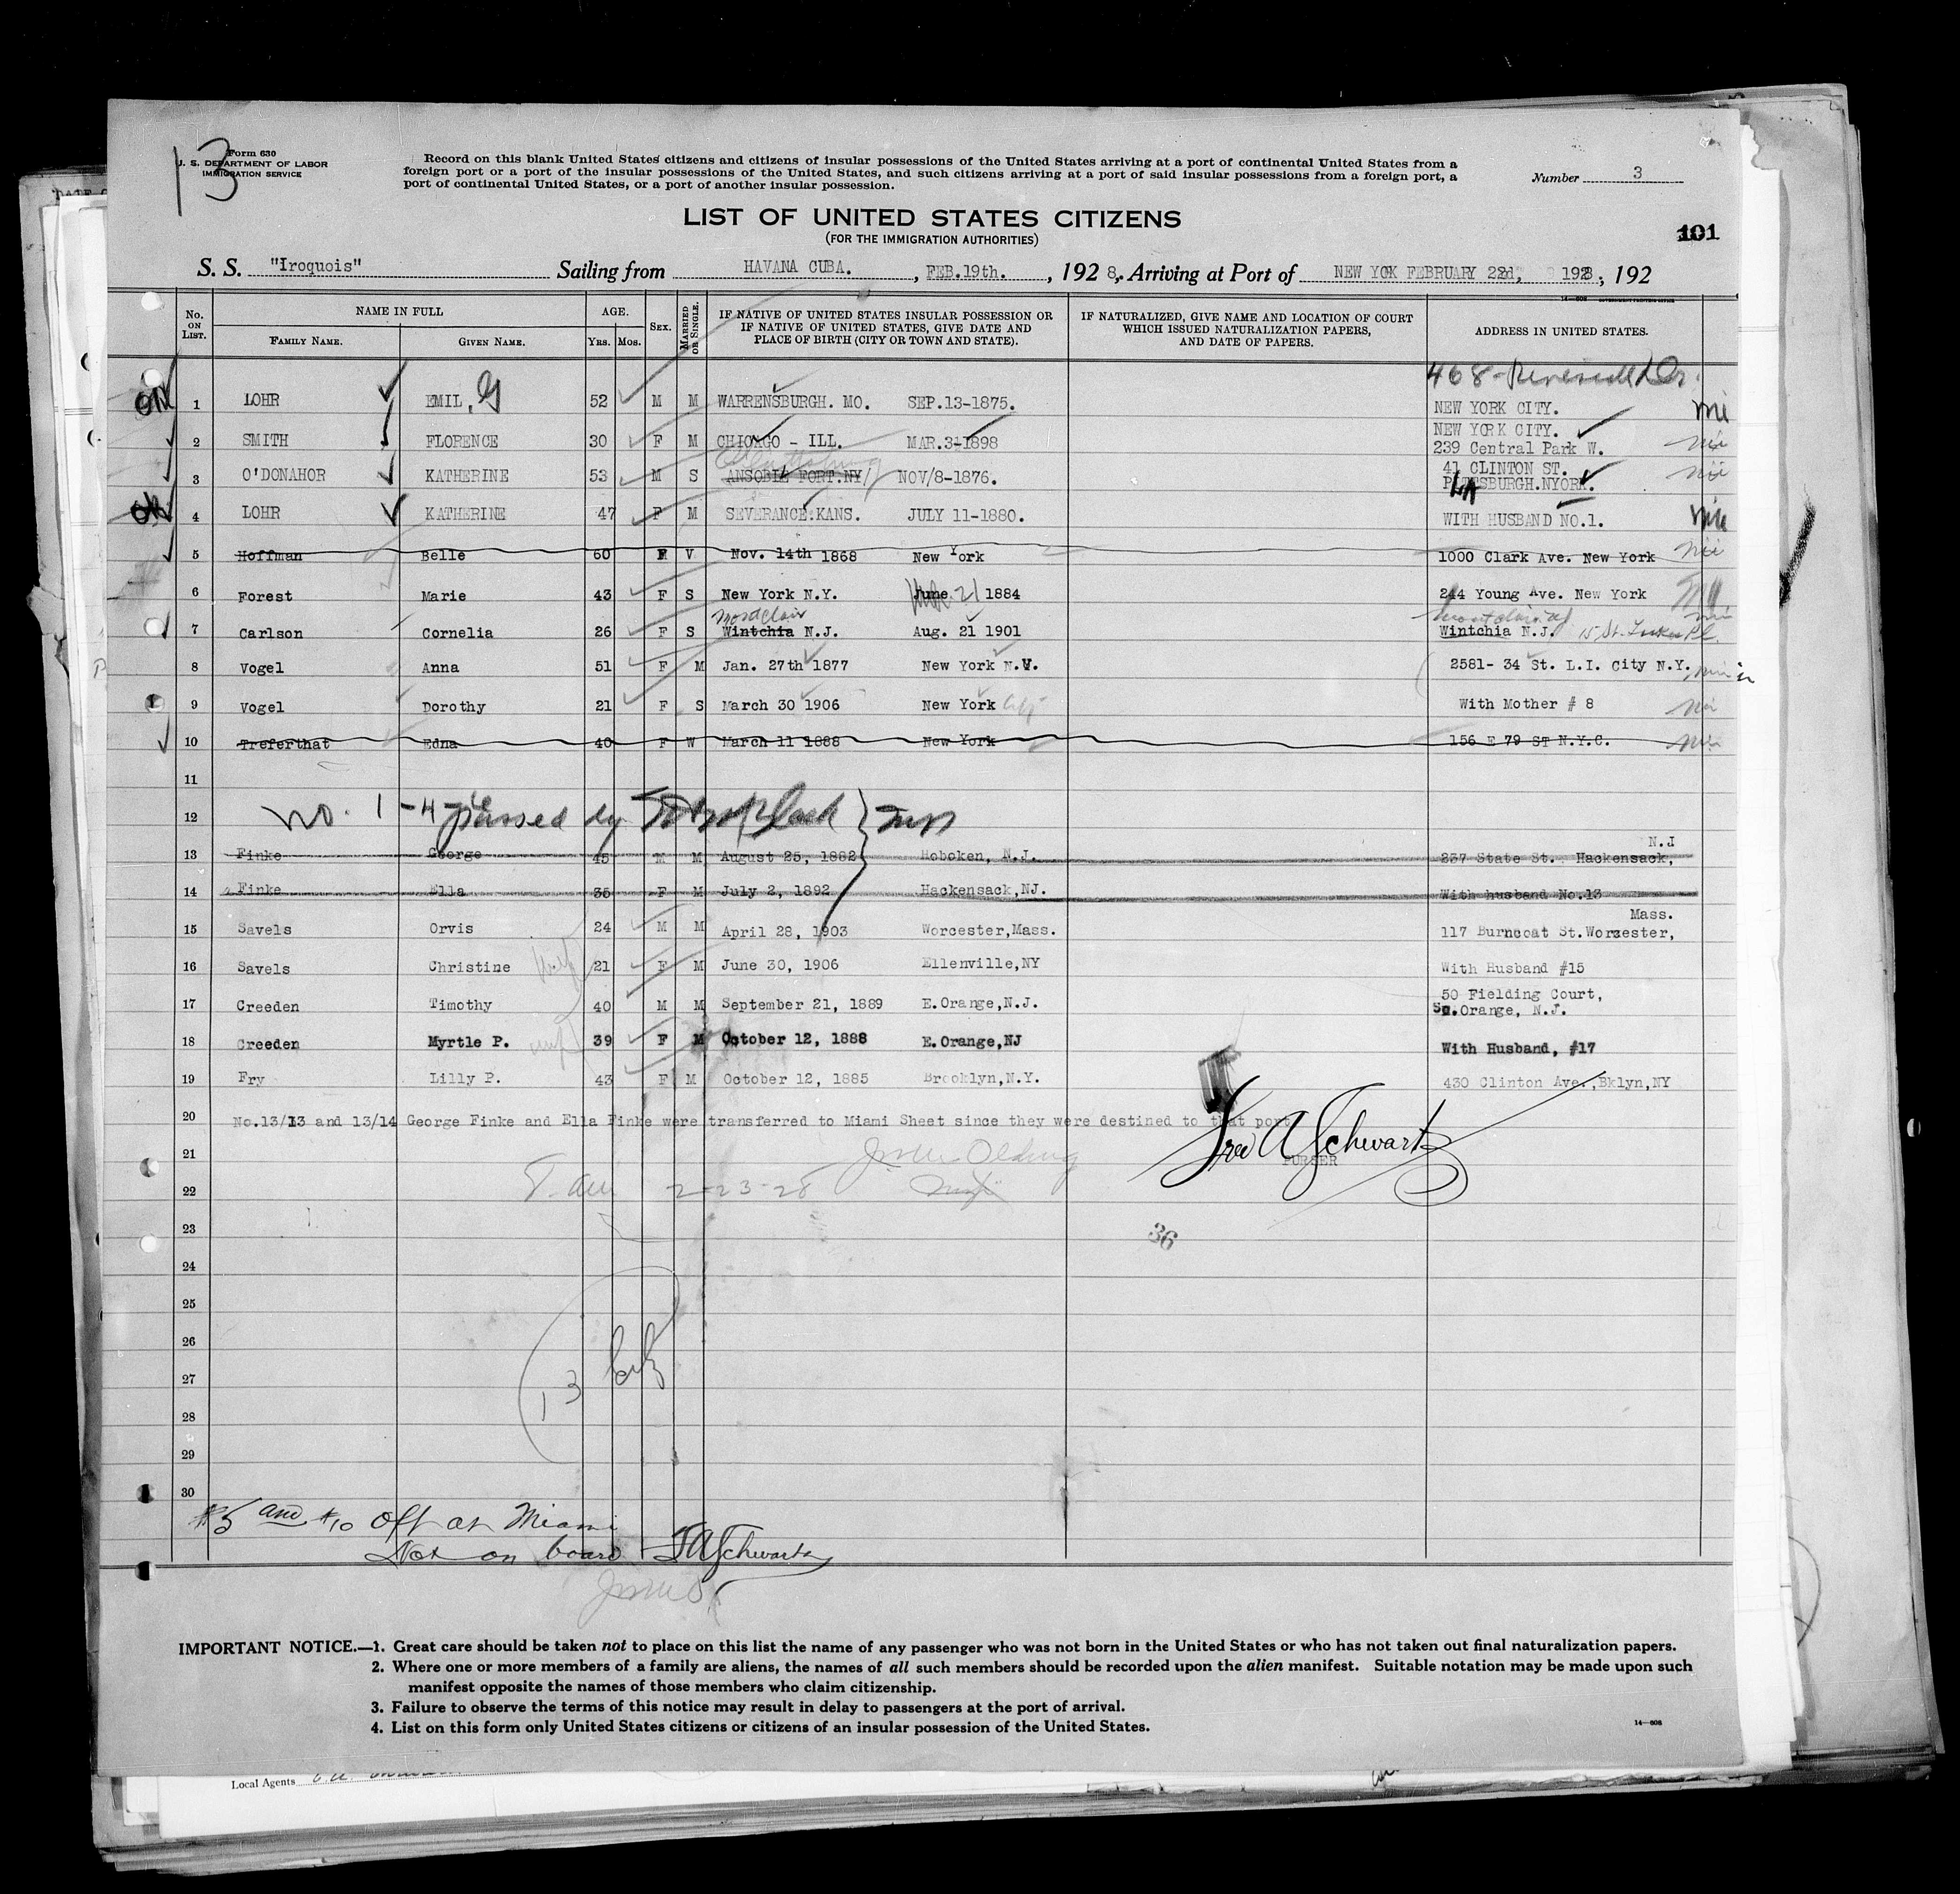 13
Form 630
U. S. DEPARTMENT OF LABOR
IMMIGRATION SERVICE
Record on this blank United States citizens and citizens of insular possessions of the United States arriving at a port of continental United States from a
foreign port or a port of the insular possessions of the United States, and such citizens arriving at a port of said insular possessions from a foreign port, a
port of continental United States, or a port of another insular possession.
Number 3
LIST OF UNITED STATES CITIZENS
(FOR THE IMMIGRATION AUTHORITIES)
101
S. S. "Iroquois" Sailing from HAVANA CUBA. , FEB.19th. , 192 8, Arriving at Port of NEW YOK FEBRUARY 22d, 1928, 192
No. ON LIST. NAME IN FULL FAMILY NAME. GIVEN NAME. AGE. YRS. MOS. SEX. MARRIED OR SINGLE. IF NATIVE OF UNITED STATES INSULAR POSSESSION OR IF NATIVE OF UNITED STATES, GIVE DATE AND PLACE OF BIRTH (CITY OR TOWN AND STATE). IF NATURALIZED, GIVE NAME AND LOCATION OF COURT WHICH ISSUED NATURALIZATION PAPERS, AND DATE OF PAPERS. ADDRESS IN UNITED STATES.
468 - Riverside Dr.
OK 1 LOHR EMIL, G 52 M M WARRENSBURGH. MO. SEP.13-1875. NEW YORK CITY.
2 SMITH FLORENCE 30 F M CHICAGO - ILL. MAR.3-1898 NEW YORK CITY. 239 Central Park W.
3 O'DONAHOR KATHERINE 53 M S ANSOBLE FORT.NY NOV/8-1876. 41 CLINTON ST. PLATTSBURGH.NYORK.
OK 4 LOHR KATHERINE 47 F M SEVERANCE.KANS. JULY 11-1880. WITH HUSBAND NO.1.
5 Hoffman Belle 60 F V Nov. 14th 1868 New York 1000 Clark Ave. New York
6 Forest Marie 43 F S New York N.Y. June 21 1884 244 Young Ave. New York
7 Carlson Cornelia 26 F S Wintchia N.J. Aug. 21 1901 Wintchia N.J. 15 St. Lukes Pl.
8 Vogel Anna 51 F M Jan. 27th 1877 New York N.Y. 2581- 34 St. L.I. City N.Y.
9 Vogel Dorothy 21 F S March 30 1906 New York City With Mother # 8
10 Treferthat Edna 40 F W March 11 1888 New York 156 E 79 ST N.Y.C.
11
12 No. 1-4 passed by
13 Finke George 45 M M August 25, 1882 Hoboken, N.J. 237 State St. Hackensack, N.J
14 Finke Ella 35 F M July 2, 1892 Hackensack,NJ. With husband No.13
15 Savels Orvis 24 M M April 28, 1903 Worcester,Mass. 117 Burncoat St.Worzester, Mass.
16 Savels Christine 21 F M June 30, 1906 Ellenville,NY With Husband #15
17 Creeden Timothy 40 M M September 21, 1889 E.Orange,N.J. 50 Fielding Court, So.Orange, N.J.
18 Creeden Myrtle P. 39 F M October 12, 1888 E.Orange,NJ With Husband, #17
19 Fry Lilly P. 43 F M October 12, 1885 Brooklyn,N.Y. 430 Clinton Ave.,Bklyn,NY
20 No.13/13 and 13/14 George Finke and Ella Finke were transferred to Miami Sheet since they were destined to that port
21 Fred A Schwartz
PURSER
22 2-23-28
23 36
24
25
26
27 13
28
29
30
#5 and #10 Off at Miami
Not on board FASchwartz
IMPORTANT NOTICE.—1. Great care should be taken not to place on this list the name of any passenger who was not born in the United States or who has not taken out final naturalization papers.
2. Where one or more members of a family are aliens, the names of all such members should be recorded upon the alien manifest. Suitable notation may be made upon such
manifest opposite the names of those members who claim citizenship.
3. Failure to observe the terms of this notice may result in delay to passengers at the port of arrival.
4. List on this form only United States citizens or citizens of an insular possession of the United States.
14—608
Local Agents